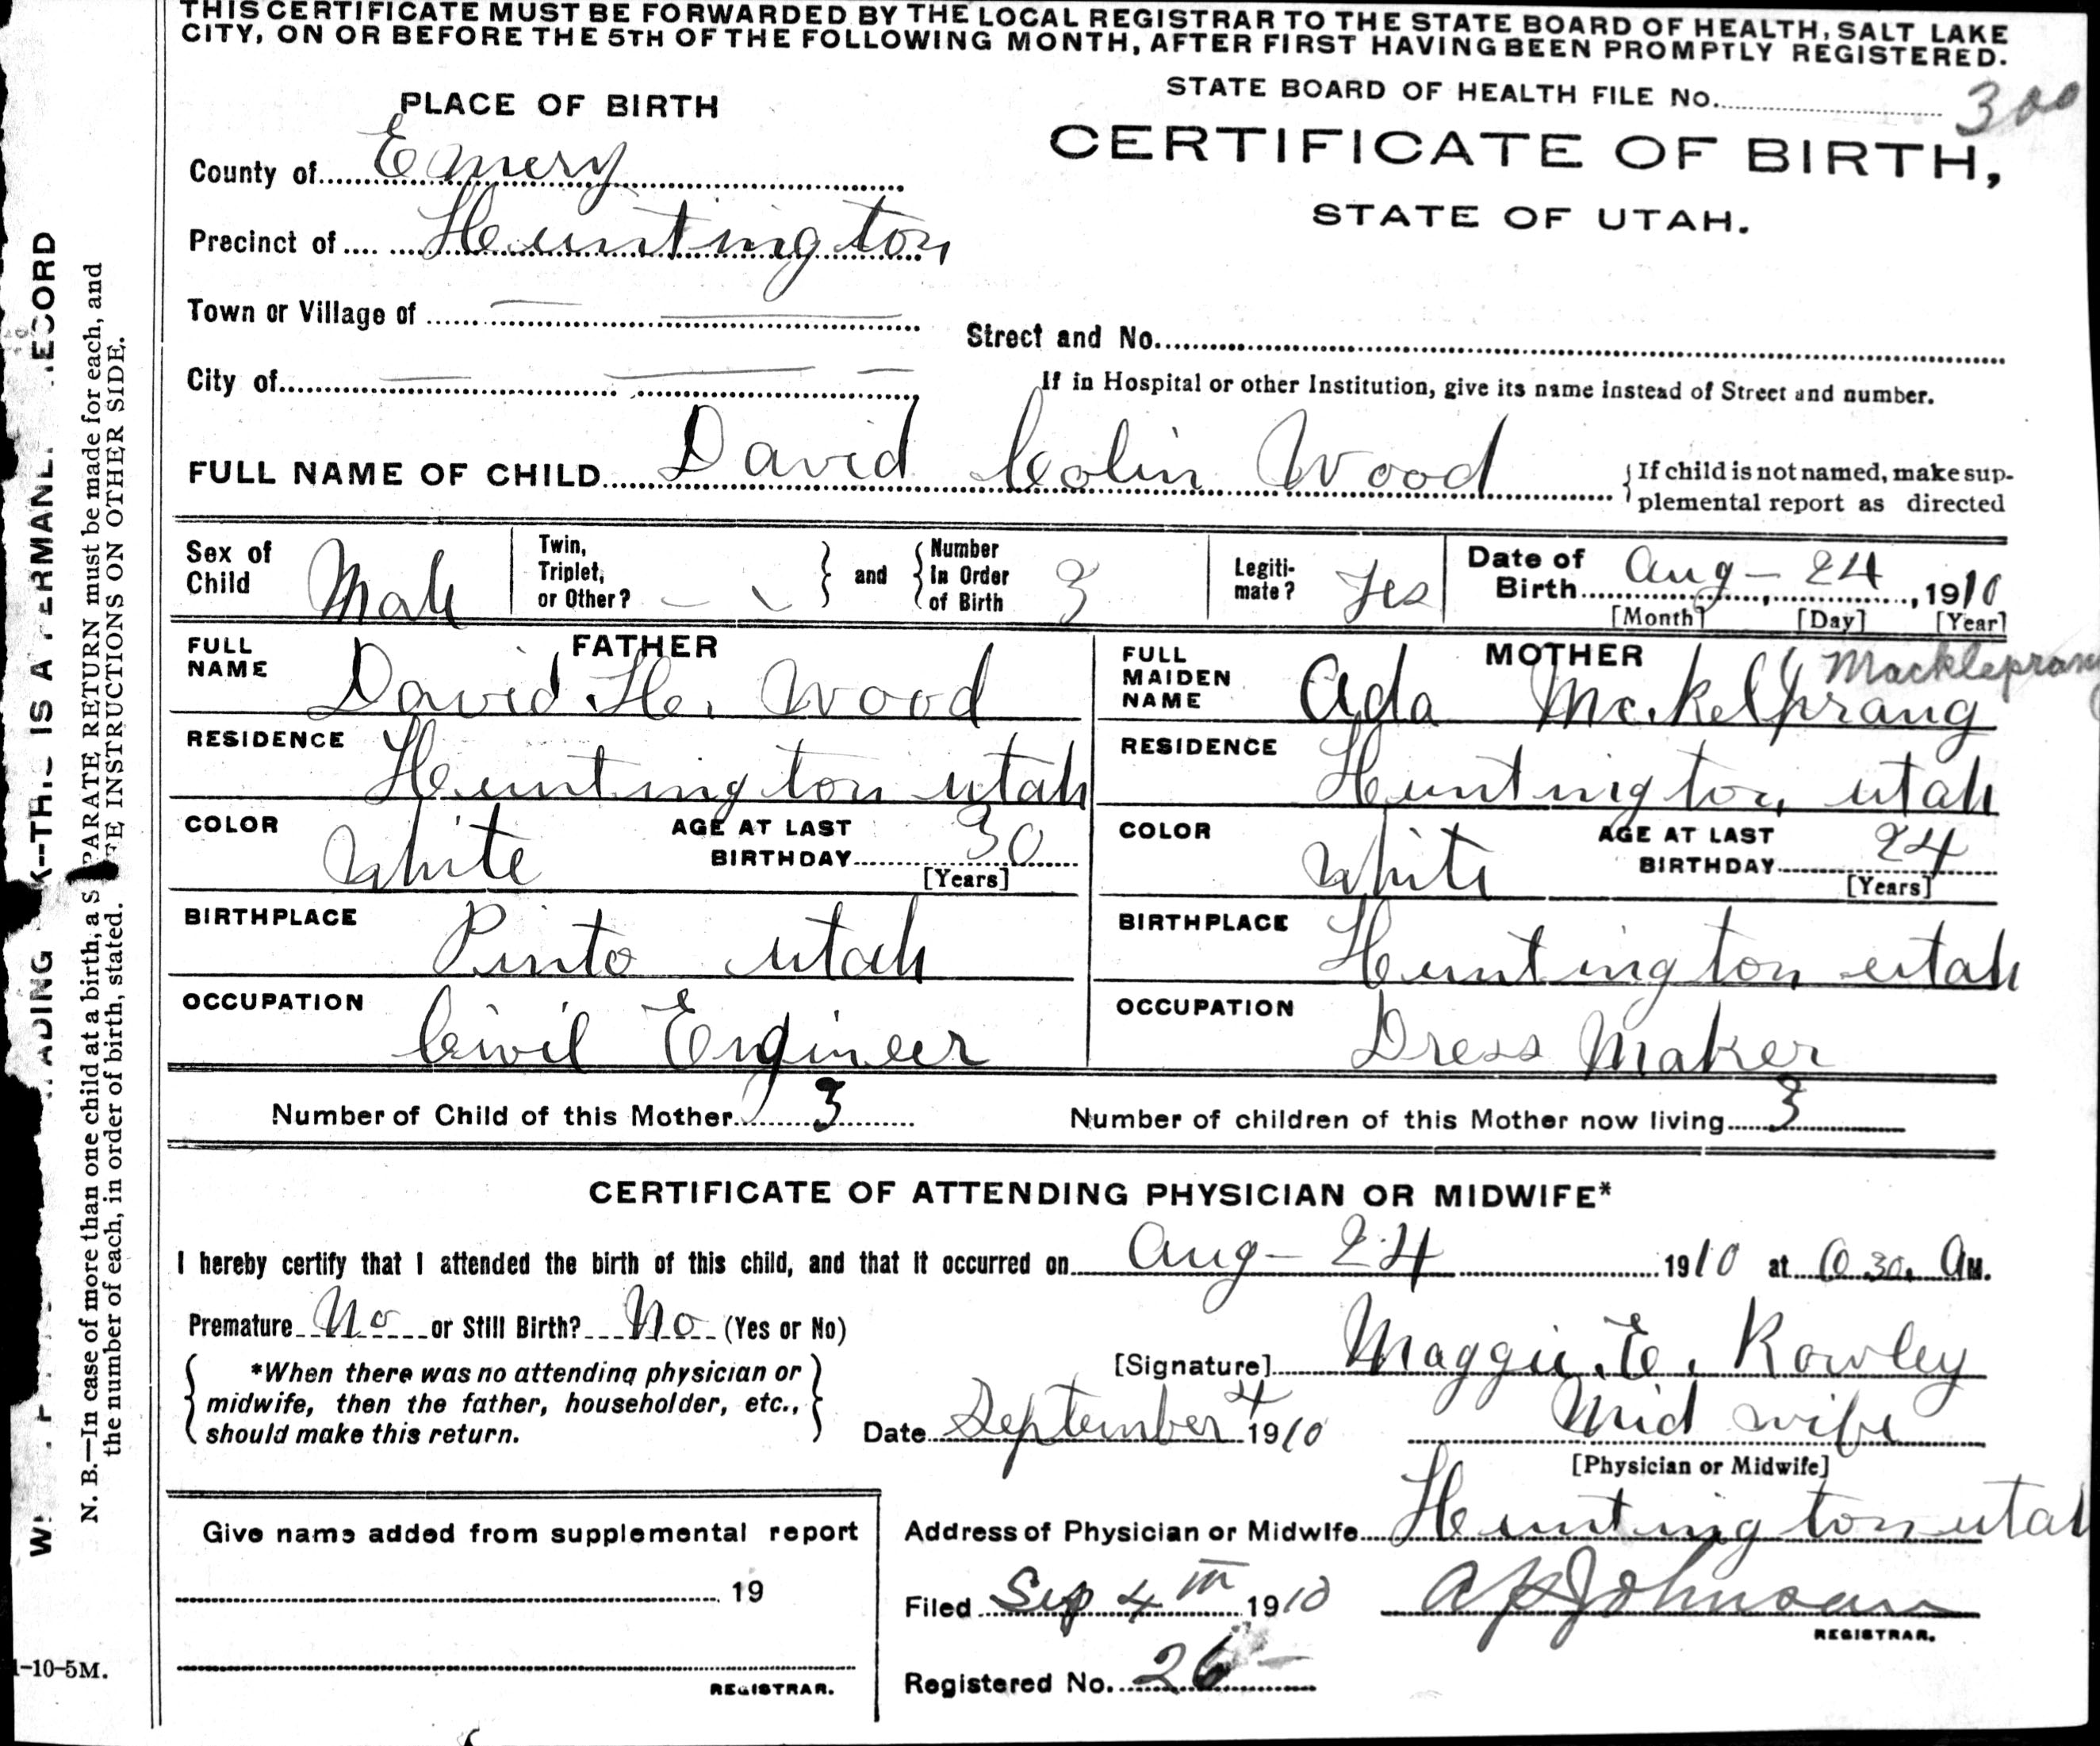 THIS CERTIFICATE MUST BE FORWARDED BY THE LOCAL REGISTRAR TO THE STATE BOARD OF HEALTH, SALT LAKE
CITY, ON OR BEFORE THE 5TH OF THE FOLLOWING MONTH, AFTER FIRST HAVING BEEN PROMPTLY REGISTERED.
STATE BOARD OF HEALTH FILE No. 300
PLACE OF BIRTH
CERTIFICATE OF BIRTH,
STATE OF UTAH.
County of Emery
Precinct of Huntington
Town or Village of
Street and No.
City of
If in Hospital or other Institution, give its name instead of Street and number.
FULL NAME OF CHILD David Colin Wood
If child is not named, make sup-
plemental report as directed
Sex of Child Male
Twin, Triplet, or Other?
and
Number in Order of Birth 3
Legiti-mate? Yes
Date of Birth Aug - 24, 1910
[Month] [Day] [Year]
FATHER
FULL NAME David H. Wood
RESIDENCE Huntington utah
COLOR White
AGE AT LAST BIRTHDAY 30
[Years]
BIRTHPLACE Pinto utah
OCCUPATION Civil Engineer
MOTHER Mackleprang
FULL MAIDEN NAME Ada McKelprang
RESIDENCE Huntington, utah
COLOR White
AGE AT LAST BIRTHDAY 24
[Years]
BIRTHPLACE Huntington utah
OCCUPATION Dress Maker
Number of Child of this Mother 3
Number of children of this Mother now living 3
CERTIFICATE OF ATTENDING PHYSICIAN OR MIDWIFE*
I hereby certify that I attended the birth of this child, and that it occurred on Aug - 24 1910 at 30 AM.
Premature No or Still Birth? No (Yes or No)
*When there was no attending physician or
midwife, then the father, householder, etc.,
should make this return.
[Signature] Maggie. E. Rowley
Date September 4 1910
Mid wife
[Physician or Midwife]
Give name added from supplemental report
19
REGISTRAR.
Address of Physician or Midwife Huntington utah
Filed Sep 4th 1910
A Johnson
REGISTRAR.
Registered No. 26
N. B.—In case of more than one child at a birth, a SEPARATE RETURN must be made for each, and
the number of each, in order of birth, stated. INSTRUCTIONS ON OTHER SIDE.
THIS IS A RECORD
1-10-5M.